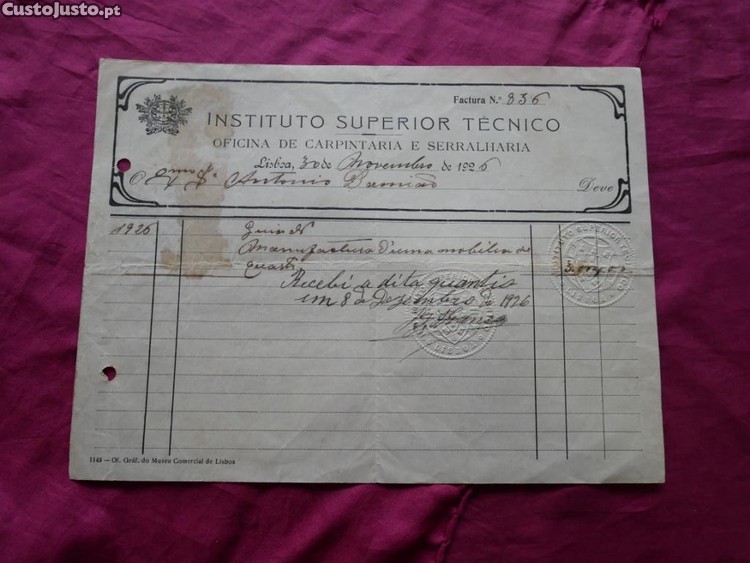 CustoJusto.pt
Factura N.º 836
INSTITUTO SUPERIOR TÉCNICO
OFICINA DE CARPINTARIA E SERRALHARIA
Lisboa, 30 de Novembro de 1926
O Antonio Damião Deve
1926
Manufactura d'uma mobilia de
quarto
Recebi a dita quantia
em 8 de Dezembro de 1926
INSTITUTO SUPERIOR
LISBOA
1148 — Of. Gráf. do Museu Comercial de Lisboa